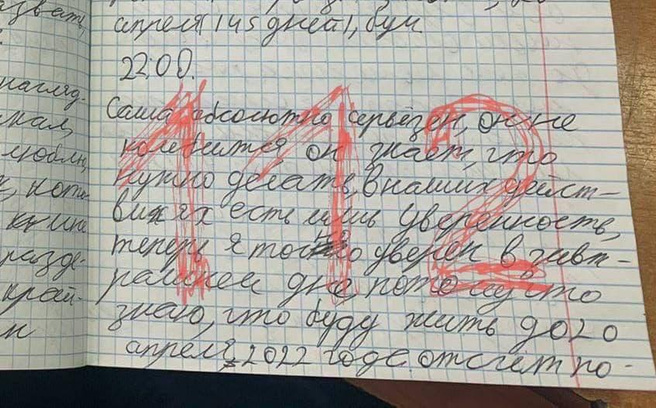 апреля (145 дней), бум.
22:00.
наслед-
Саша абсолютно серьёзен, он не
колеблется он знает, что
нужно делать, в наших дейст-
виях есть лишь уверенность,
теперь я точно уверен в завт-
рашнем дне, потому что
знаю, что буду жить до 20
апреля, 2022 года. отсчет по-
разде-
край-
112